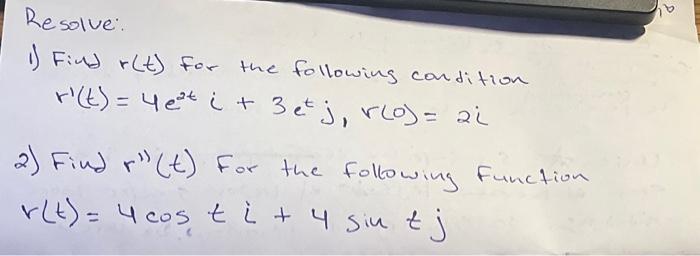 Resolve:
1) Find r(t) for the following condition
r'(t) = 4e²ᵗ i + 3eᵗ j, r(0) = 2i
2) Find r''(t) For the following Function
r(t) = 4 cos t i + 4 sin t j